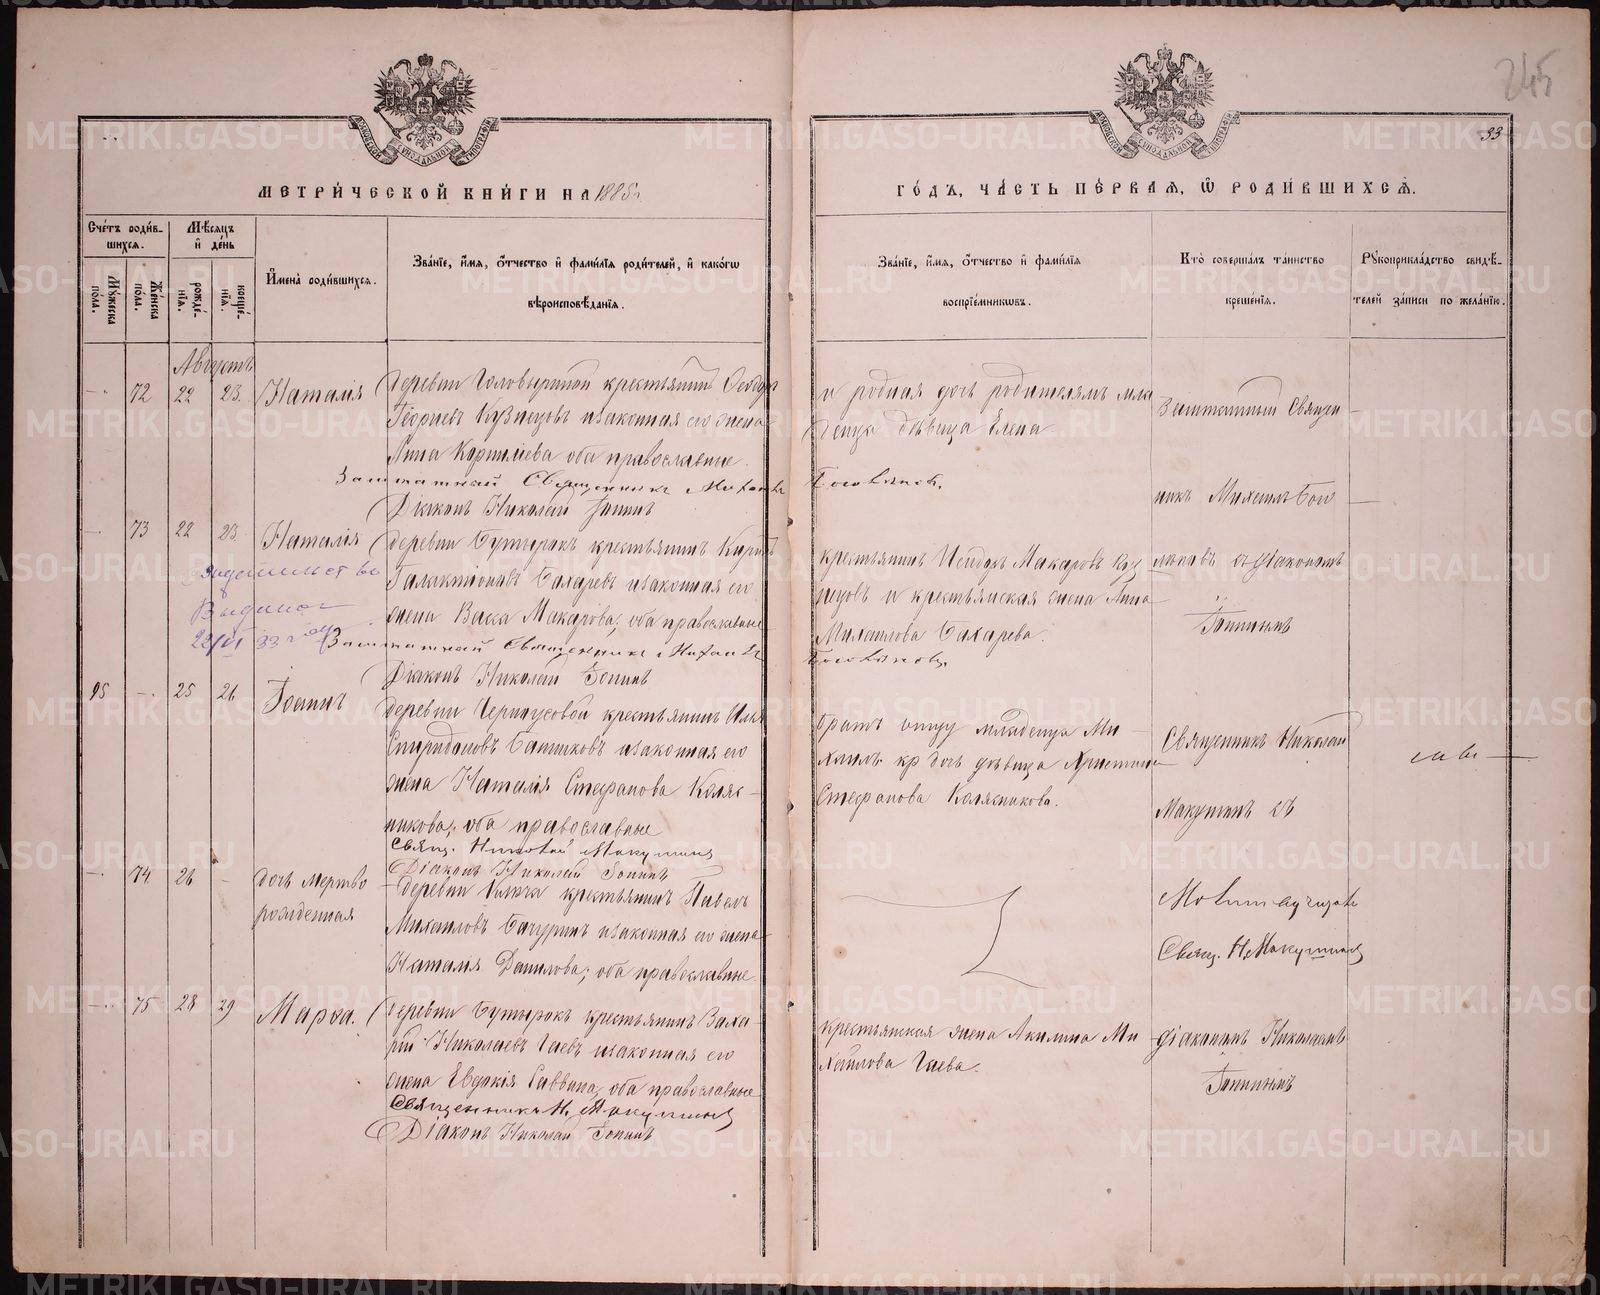 245
33
МЕТРИ́ЧЕСКОЙ КНИ́ГИ НА 1885 г.
ГО́ДЪ, ЧА́СТЬ ПЕ́РВАЯ, Ѡ РОДИ́ВШИХСЯ.
Сче́тъ роди́в-
шихся.
Мѣ́сяцъ
и де́нь
Му́жеска
по́ла.
Же́нска
по́ла.
рожде́-
нїя.
креще́-
нїя.
И҆мена̀ роди́вшихся.
Зва́нїе, и҆́мя, ѻ҆́тчество и҆ фами́лїя роди́телей, и҆ како́гѡ
вѣроисповѣ́данїя.
Зва́нїе, и҆́мя, ѻ҆́тчество и҆ фами́лїя
воспрїе́мниковъ.
Кто̀ соверша́лъ та́инство
креще́нїя.
Рукоприкла́дство свидѣ́-
телей за́писи по жела́нїю.
Августъ
72 22 23 Наталія деревни Головыриной крестьянинъ Ѳеодоръ
Георгіевъ Кузнецовъ и законная его жена
Анна Корниліева оба православные.
Заштатный Священникъ Михаилъ
Боголѣповъ.
Діаконъ Николай Іонинъ
и родная дочь родителямъ мла
денца дѣвица Елена
Заштатный Священ
никъ Михаилъ Бого
73 22 23 Наталія деревни Бутырокъ крестьянинъ
Галактіоновъ Бахаревъ и законная его
жена Васса Макарова; оба православные
Заштатный Священникъ Михаилъ
Боголѣповъ.
Діаконъ Николай Іонинъ
свидетельство
Выдано
22/VI 33 года
крестьянинъ Макаровъ Куз
нецовъ и крестьянская жена Анна
Михаилова Бахарева.
лѣповъ съ діакономъ
Іонинымъ
95 25 26 Іоаннъ деревни Черноусовой крестьянинъ Илья
Спиридоновъ Банниковъ и законная его
жена Наталія Стефанова Коляс-
никова; оба православные
Свящ. Николай Макушинъ
Діаконъ Николай Іонинъ
братъ отцу младенца Ми-
хаилъ кр дочь дѣвица Христина
Стефанова Колясникова.
Священникъ Николай
Макушинъ съ
74 26 дочь мертво
рожденная
деревни Ключа крестьянинъ Павелъ
Михаиловъ Бачуринъ и законная его жена
Наталія Данилова; оба православные
Молитву читалъ
Свящ. Н. Макушинъ
75 28 29 Марѳа. деревни Бутырокъ крестьянинъ Заха-
рій Николаевъ Гаевъ и законная его
жена Евдокія Саввина, оба православные
Священникъ Н. Макушинъ
Діаконъ Николай Іонинъ
крестьянская жена Акилина Ми
хайлова Гаева.
діакономъ Николаемъ
Іонинымъ
METRIKI.GASO-URAL.RU